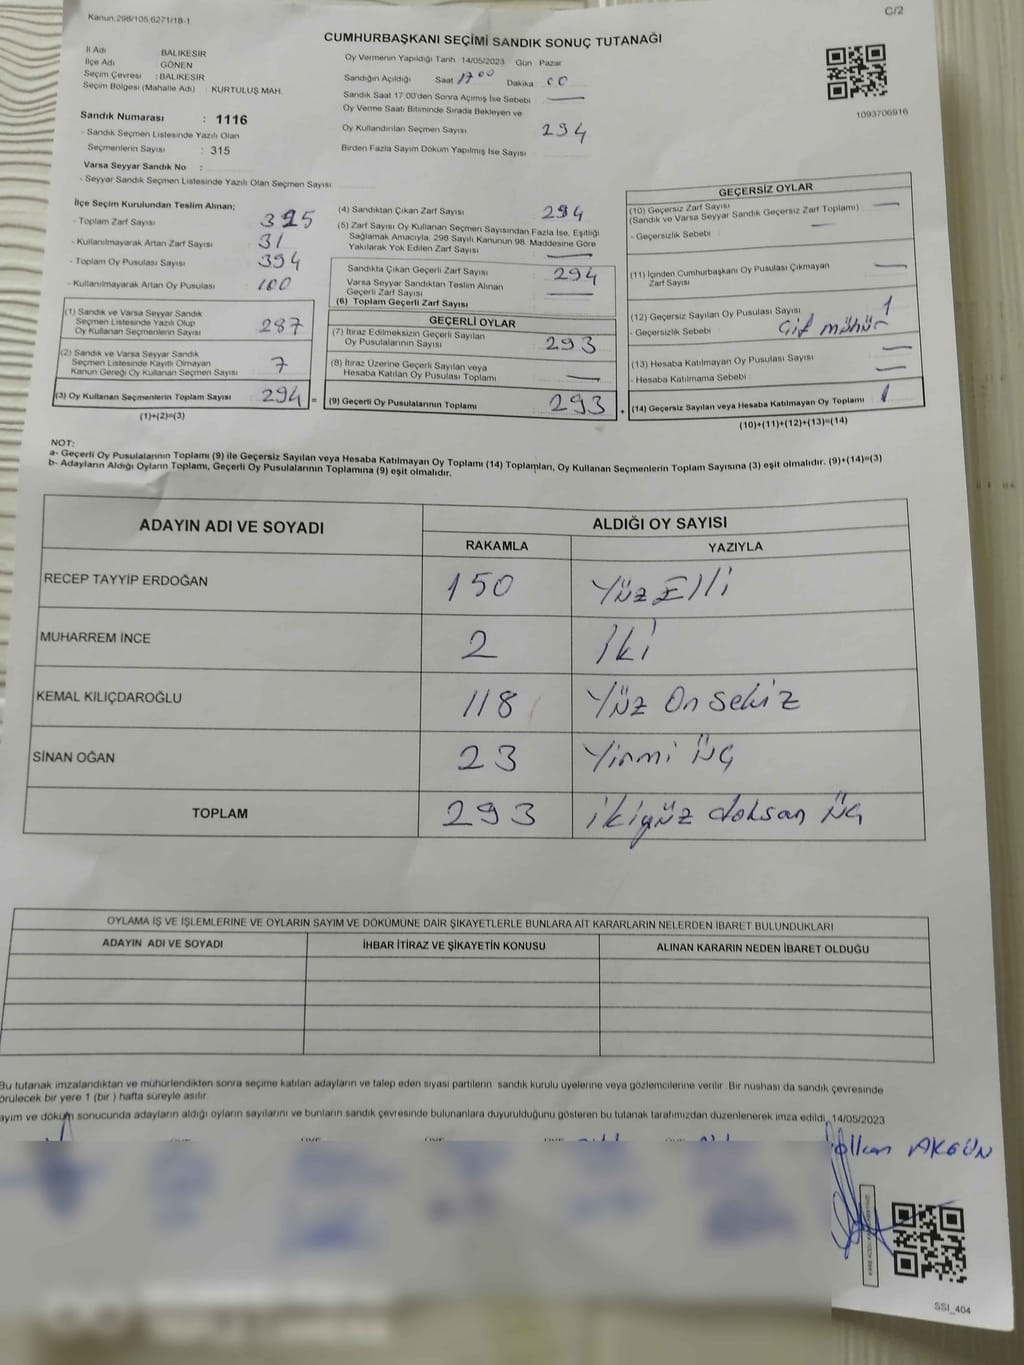 Kanun.298/105,6271/18-1
C/2
CUMHURBAŞKANI SEÇİMİ SANDIK SONUÇ TUTANAĞI
İl Adı BALIKESİR
İlçe Adı GÖNEN
Seçim Çevresi : BALIKESİR
Seçim Bölgesi (Mahalle Adı) : KURTULUŞ MAH.
Sandık Numarası : 1116
- Sandık Seçmen Listesinde Yazılı Olan
Seçmenlerin Sayısı : 315
Varsa Seyyar Sandık No :
- Seyyar Sandık Seçmen Listesinde Yazılı Olan Seçmen Sayısı
Oy Vermenin Yapıldığı Tarih :14/05/2023 Gün Pazar
Sandığın Açıldığı Saat 17 00 Dakika 00
Sandık Saat 17:00'den Sonra Açılmış İse Sebebi
Oy Verme Saati Bitiminde Sırada Bekleyen ve
Oy Kullandırılan Seçmen Sayısı 294
Birden Fazla Sayım Döküm Yapılmış İse Sayısı
1093706916
İlçe Seçim Kurulundan Teslim Alınan;
- Toplam Zarf Sayısı 325
- Kullanılmayarak Artan Zarf Sayısı 31
- Toplam Oy Pusulası Sayısı 394
- Kullanılmayarak Artan Oy Pusulası 100
(1) Sandık ve Varsa Seyyar Sandık
Seçmen Listesinde Yazılı Olup
Oy Kullanan Seçmenlerin Sayısı 287
(2) Sandık ve Varsa Seyyar Sandık
Seçmen Listesinde Kayıtlı Olmayan
Kanun Gereği Oy Kullanan Seçmen Sayısı 7
(3) Oy Kullanan Seçmenlerin Toplam Sayısı 294 =
(1)+(2)=(3)
(4) Sandıktan Çıkan Zarf Sayısı 294
(5) Zarf Sayısı Oy Kullanan Seçmen Sayısından Fazla İse, Eşitliği
Sağlamak Amacıyla, 298 Sayılı Kanunun 98. Maddesine Göre
Yakılarak Yok Edilen Zarf Sayısı
Sandıkta Çıkan Geçerli Zarf Sayısı 294
Varsa Seyyar Sandıktan Teslim Alınan
Geçerli Zarf Sayısı
(6) Toplam Geçerli Zarf Sayısı
GEÇERLİ OYLAR
(7) İtiraz Edilmeksizin Geçerli Sayılan
Oy Pusulalarının Sayısı 293
(8) İtiraz Üzerine Geçerli Sayılan veya
Hesaba Katılan Oy Pusulası Toplamı
(9) Geçerli Oy Pusulalarının Toplamı 293 +
GEÇERSİZ OYLAR
(10) Geçersiz Zarf Sayısı
(Sandık ve Varsa Seyyar Sandık Geçersiz Zarf Toplamı)
- Geçersizlik Sebebi
(11) İçinden Cumhurbaşkanı Oy Pusulası Çıkmayan
Zarf Sayısı
(12) Geçersiz Sayılan Oy Pusulası Sayısı 1
- Geçersizlik Sebebi Çift mühür
(13) Hesaba Katılmayan Oy Pusulası Sayısı
- Hesaba Katılmama Sebebi
(14) Geçersiz Sayılan veya Hesaba Katılmayan Oy Toplamı 1
(10)+(11)+(12)+(13)=(14)
NOT:
a- Geçerli Oy Pusulalarının Toplamı (9) ile Geçersiz Sayılan veya Hesaba Katılmayan Oy Toplamı (14) Toplamları, Oy Kullanan Seçmenlerin Toplam Sayısına (3) eşit olmalıdır. (9)+(14)=(3)
b- Adayların Aldığı Oyların Toplamı, Geçerli Oy Pusulalarının Toplamına (9) eşit olmalıdır.
ADAYIN ADI VE SOYADI ALDIĞI OY SAYISI
RAKAMLA YAZIYLA
RECEP TAYYİP ERDOĞAN 150 Yüz Elli
MUHARREM İNCE 2 İki
KEMAL KILIÇDAROĞLU 118 Yüz On Sekiz
SİNAN OĞAN 23 Yirmi Üç
TOPLAM 293 ikiyüz doksan Üç
OYLAMA İŞ VE İŞLEMLERİNE VE OYLARIN SAYIM VE DÖKÜMÜNE DAİR ŞİKAYETLERLE BUNLARA AİT KARARLARIN NELERDEN İBARET BULUNDUKLARI
ADAYIN ADI VE SOYADI İHBAR İTİRAZ VE ŞİKAYETİN KONUSU ALINAN KARARIN NEDEN İBARET OLDUĞU
Bu tutanak imzalandıktan ve mühürlendikten sonra seçime katılan adayların ve talep eden siyasi partilerin sandık kurulu üyelerine veya gözlemcilerine verilir. Bir nüshası da sandık çevresinde
örülecek bir yere 1 (bir ) hafta süreyle asılır.
ayım ve döküm sonucunda adayların aldığı oyların sayılarını ve bunların sandık çevresinde bulunanlara duyurulduğunu gösteren bu tutanak tarafımızdan düzenlenerek imza edildi. 14/05/2023
AKGÜN
SSI_404